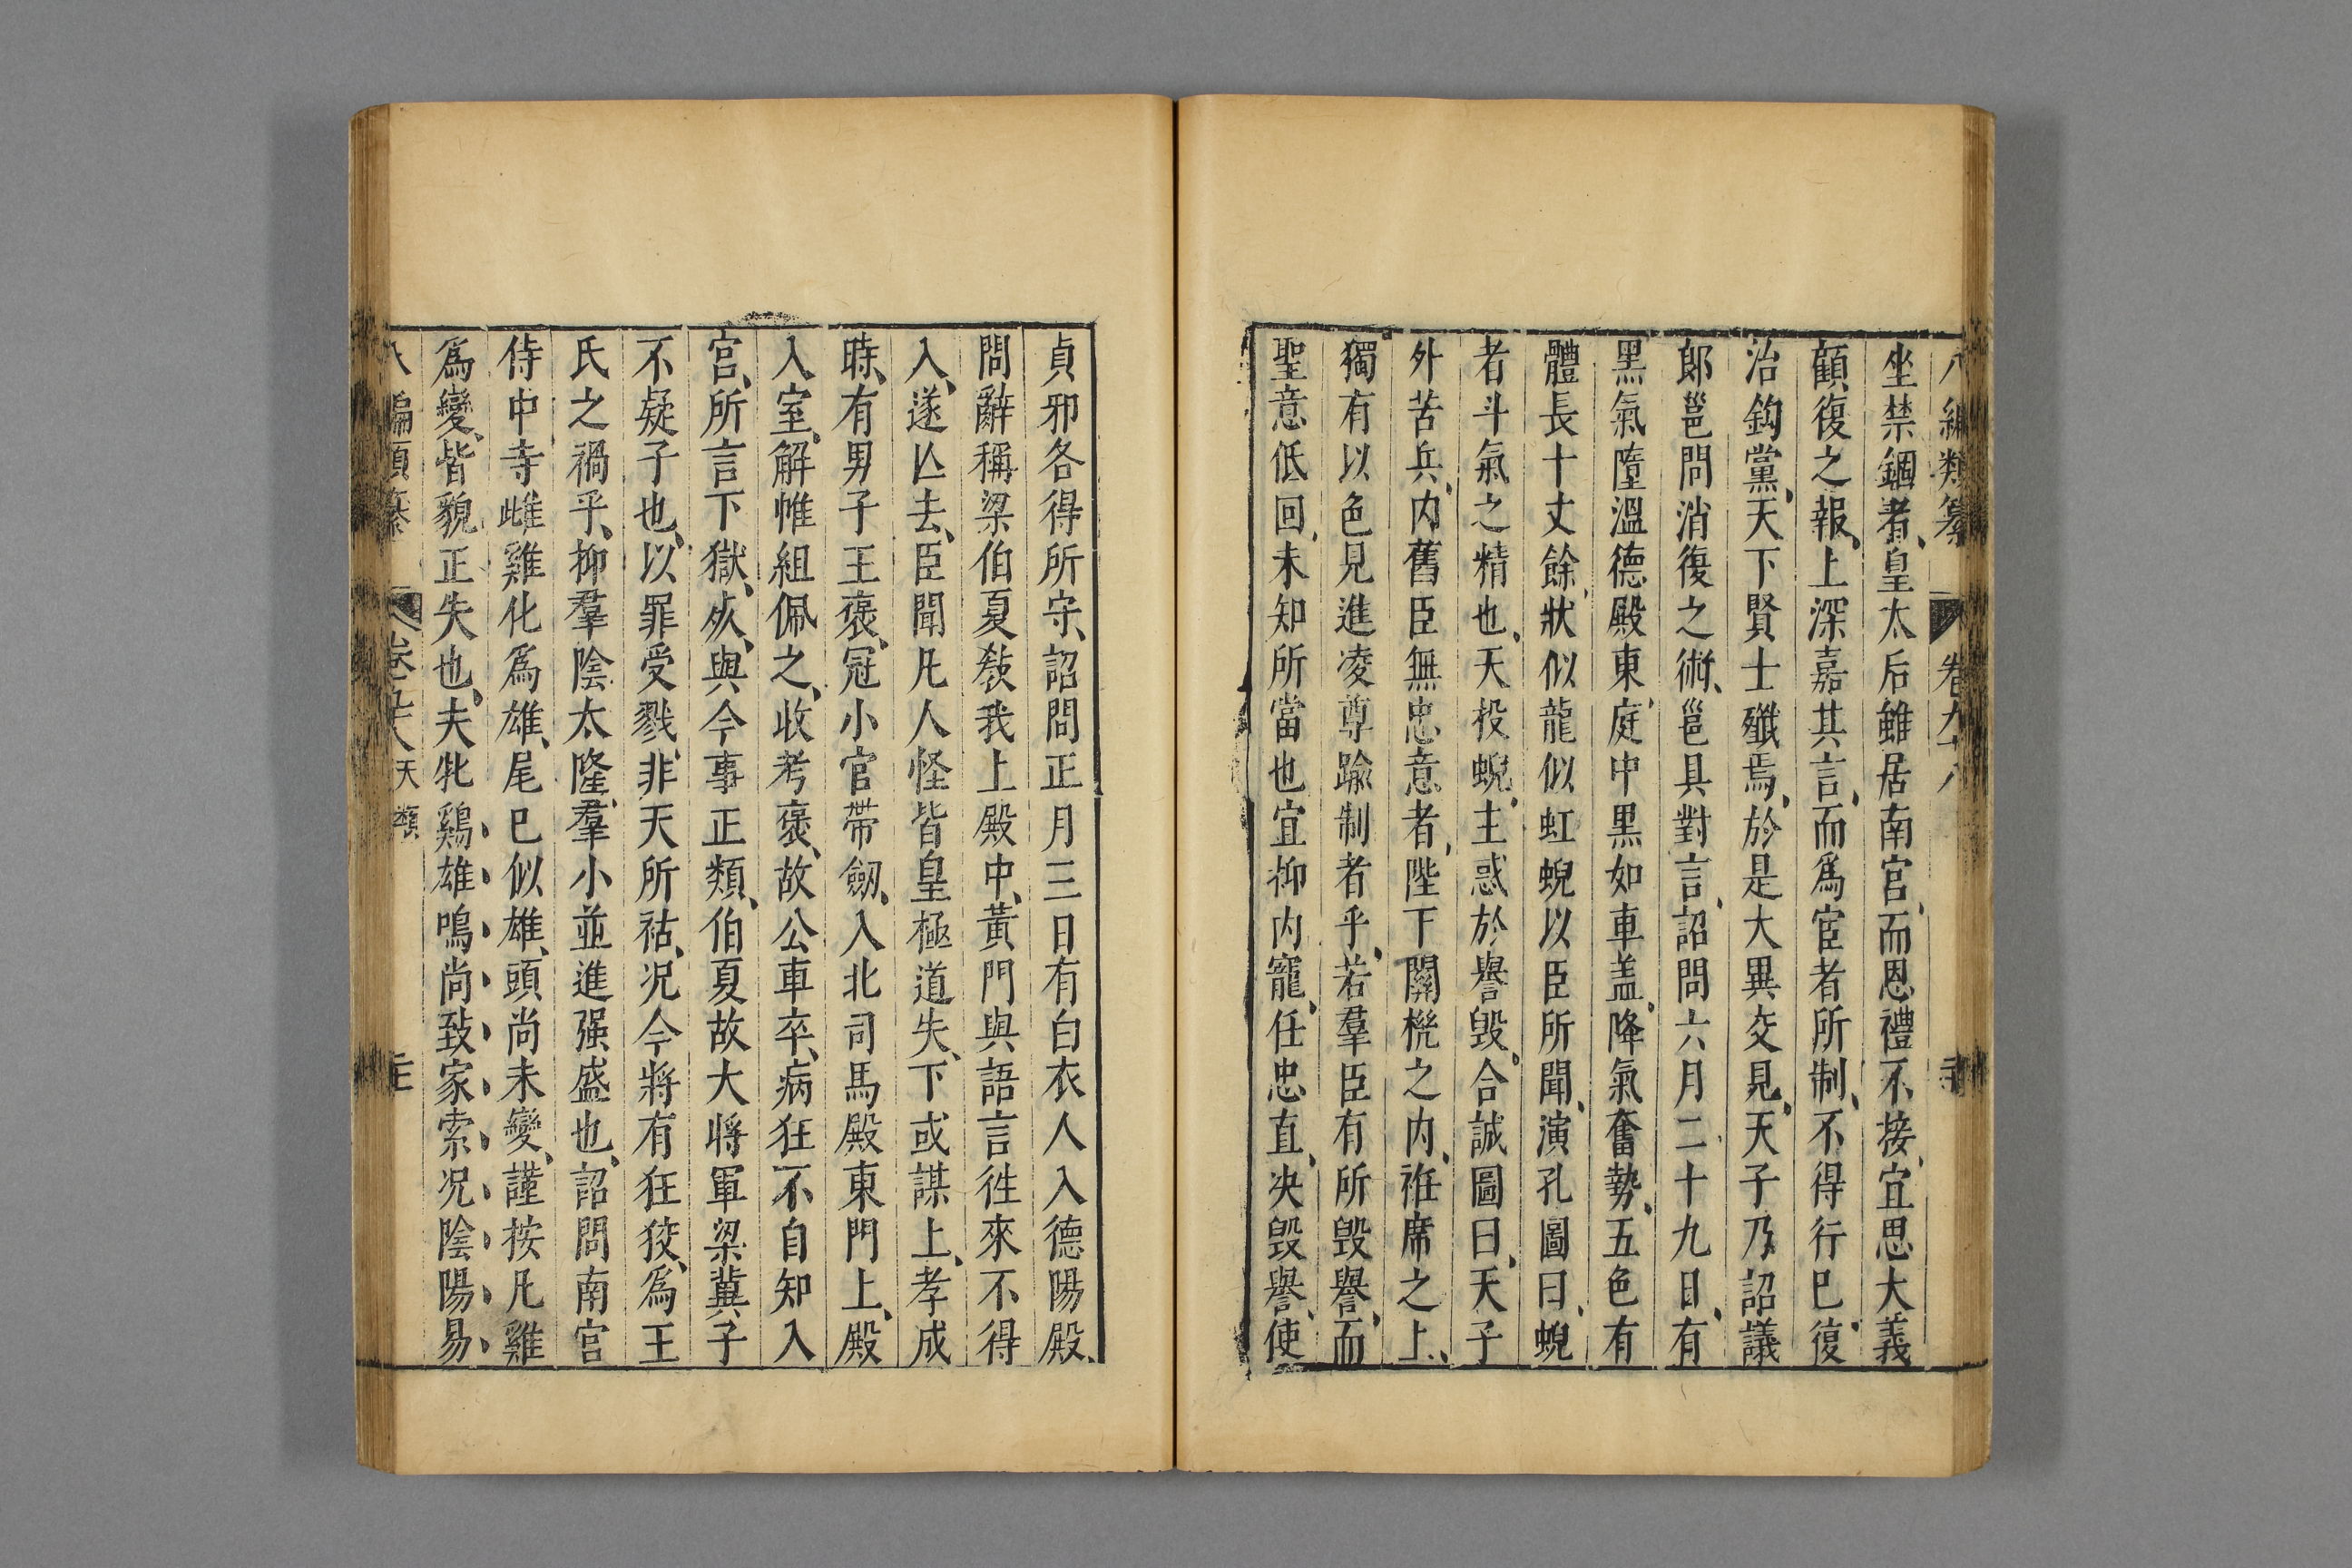 八編類纂 卷九十八
坐禁錮者皇太后雖居南宮而恩禮不接宜思大義
顧復之報上深嘉其言而爲宦者所制不得行巳復
治鈎黨天下賢士殱焉於是大異交見天子乃詔議
郎邕問消復之術邕具對言詔問六月二十九日有
黑氣墮溫德殿東庭中黒如車盖降氣奮勢五色有
體長十丈餘狀似龍似虹蜺以臣所聞演孔圖曰蜺
者斗氣之精也天投蜺主惑於譽毁合誠圖曰天子
外苦兵内舊臣無忠意者陛下闚梲之内袵席之上
獨有以色見進凌尊踰制者乎若羣臣有所毁譽而
聖意低回未知所當也宜抑内寵任忠直决毁譽使
貞邪各得所守詔問正月三日有白衣人入德陽殿
問辭稱梁伯夏敎我上殿中黃門與語言徃來不得
入遂亾去臣聞凡人怪皆皇極道失下或謀上孝成
時有男子王褒冠小官帶劒入北司馬殿東門上殿
入室解帷組佩之收考褒故公車卒病狂不自知入
宮所言下獄死與今事正類伯夏故大將軍梁冀子
不疑子也以罪受戮非天所祜况今將有狂狡爲王
氏之禍乎抑羣陰太隆羣小並進强盛也詔問南宮
侍中寺雌雞化爲雄尾巳似雄頭尚未變謹按凡雞
爲變皆貌正失也夫牝鷄雄鳴尚致家索况陰陽易
八編類纂 卷九十八 天類